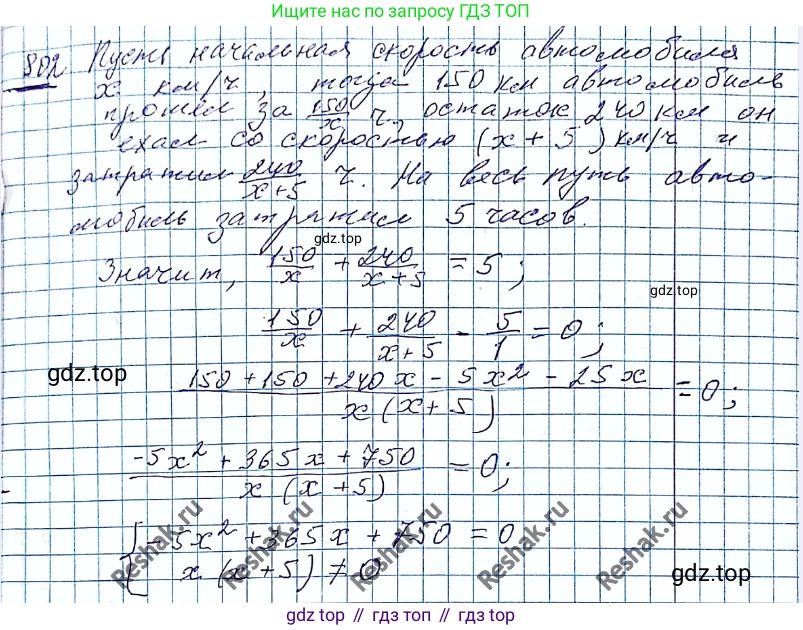 Ищите нас по запросу ГДЗ ТОП
802 Пусть начальная скорость автомобиля
x км/ч, тогда 150 км автомобиль
прошел за 150/x ч., остаток 240 км он
ехал со скоростью (x + 5) км/ч и
затратил 240/(x+5) ч. На весь путь авто-
мобиль затратил 5 часов.
gdz.top
Значит, 150/x + 240/(x+5) = 5;
gdz.top
150/x + 240/(x+5) - 5/1 = 0;
gdz.top
(150 + 150 + 240x - 5x² - 25x)/(x(x+5)) = 0;
(-5x² + 365x + 750)/(x(x+5)) = 0;
{-5x² + 365x + 750 = 0
x(x+5) ≠ 0
Reshak.ru
Reshak.ru
Reshak.ru
Reshak.ru
gdz.top
gdz top // гдз топ // gdz top